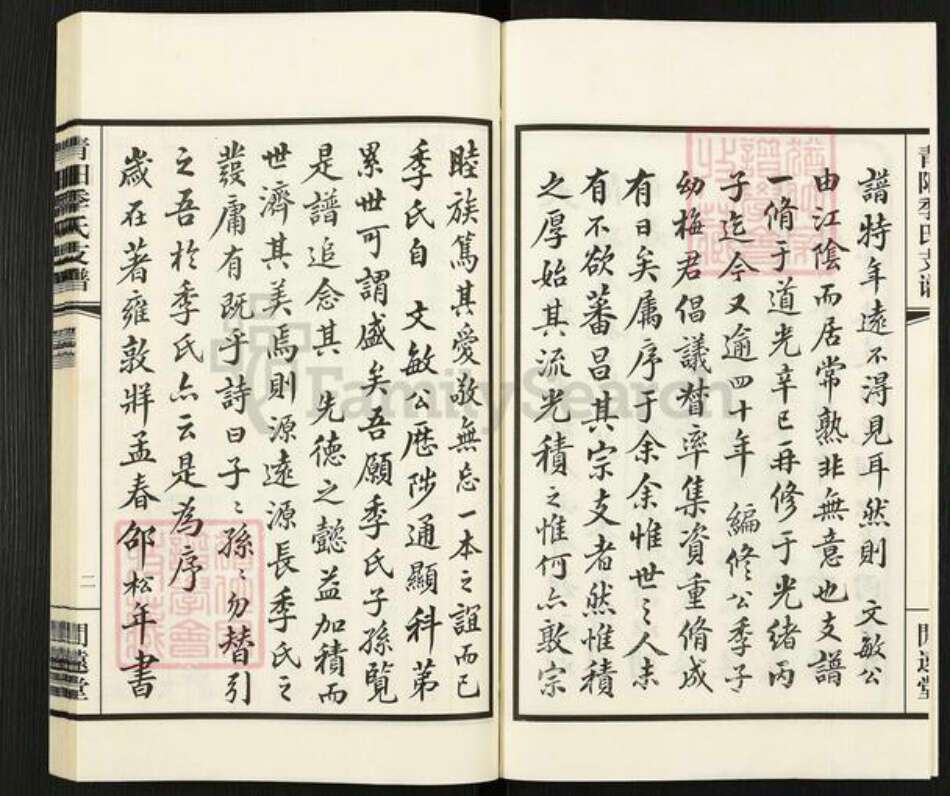 譜特年遠不得見耳然則　文敏公
由江陰而居常熟非無意也支譜
一脩于道光辛巳再修于光緒丙
子迄今又逾四十年　編修公季子
幼梅君倡議督率集資重脩成
有日矣属序于余余惟世之人未
有不欲蕃昌其宗支者然惟積
之厚始其流光積之惟何亦敦宗
睦族篤其愛敬無忘一本之誼而已
季氏自　文敏公歴陟通顯科第
累世可謂盛矣吾願季氏子孫覽
是譜追念其　先德之懿益加積而
世濟其美焉則源遠源長季氏之
發庸有既乎詩曰子〻孫〻勿替引
之吾於季氏亦云是為序
歲在著雍敦牂孟春邵松年書
青陽季氏支譜
二
間遠堂
FamilySearch